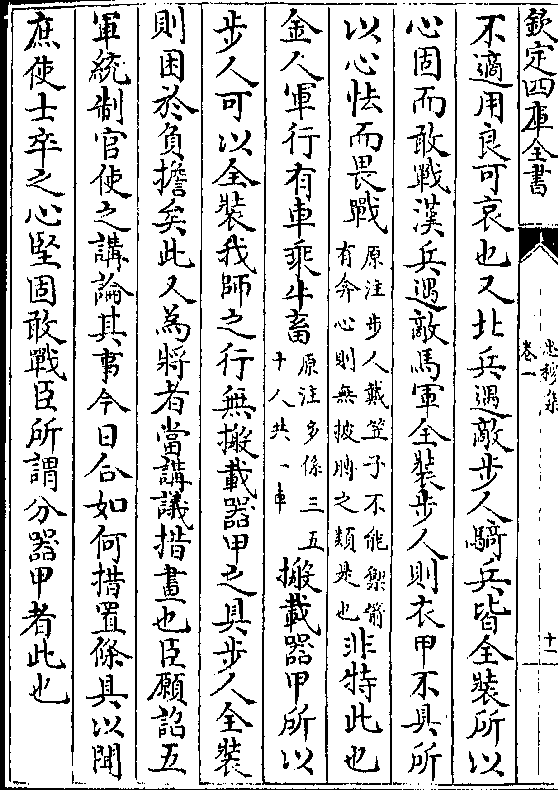 欽定四庫全書
忠穆集
卷一
十一
不適用良可哀也又北兵遇敵步人騎兵皆全裝所以
心固而敢戰漢兵遇敵馬軍全裝步人則衣甲不具所
以心怯而畏戰原注步人戴笠子不能禦箭有奔心則無披膊之類是也非特此也
金人軍行有車乘牛畜原注多係三五十人共一車搬載器甲所以
步人可以全裝我師之行無搬載器甲之具步人全裝
則困於負擔矣此又為將者當講議措畫也臣願詔五
軍統制官使之講論其事今日合如何措置條具以聞
庶使士卒之心堅固敢戰臣所謂分器甲者此也